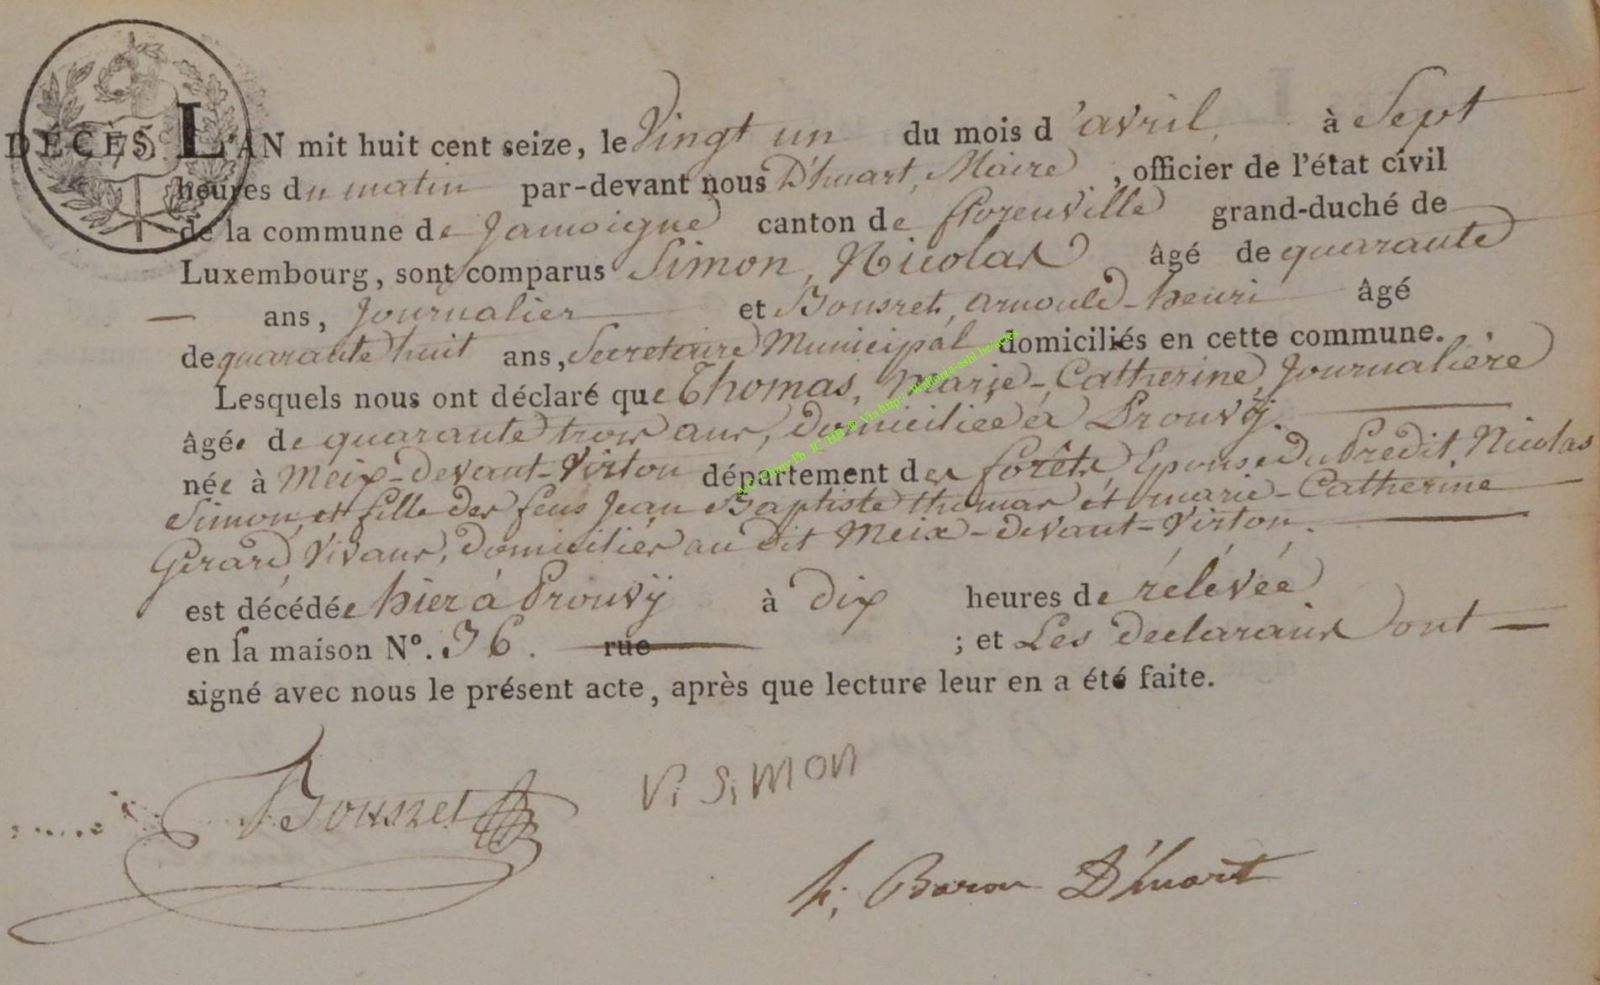 DÉCÈS L'AN mil huit cent seize, le Vingt un du mois d'avril, à Sept
heures du matin par-devant nous D'huart, Maire, officier de l'état civil
de la commune de Jamoigne canton de florenville grand-duché de
Luxembourg, sont comparus Simon, Nicolas âgé de quarante
— ans, Journalier et Bousret, arnould-henri âgé
de quarante huit ans, Secretaire Municipal domiciliés en cette commune.
Lesquels nous ont déclaré que Thomas, Marie-Catherine, Journalière
âgée de quarante trois ans, domiciliée à Prouvÿ.
née à Meix-devant-Virton département des forêts, Epouse du Prédit Nicolas
Simon, et fille des feus Jean Baptiste thomas et marie-Catherine
Gerard, Vivans, domiciliés au dit Meix-devant-Virton.
est décédée hier à Prouvÿ à dix heures de rélévée
en la maison N°. 36. rue ; et Les declarans ont —
signé avec nous le présent acte, après que lecture leur en a été faite.
Bousret N. SiMON
h; Baron D'huart